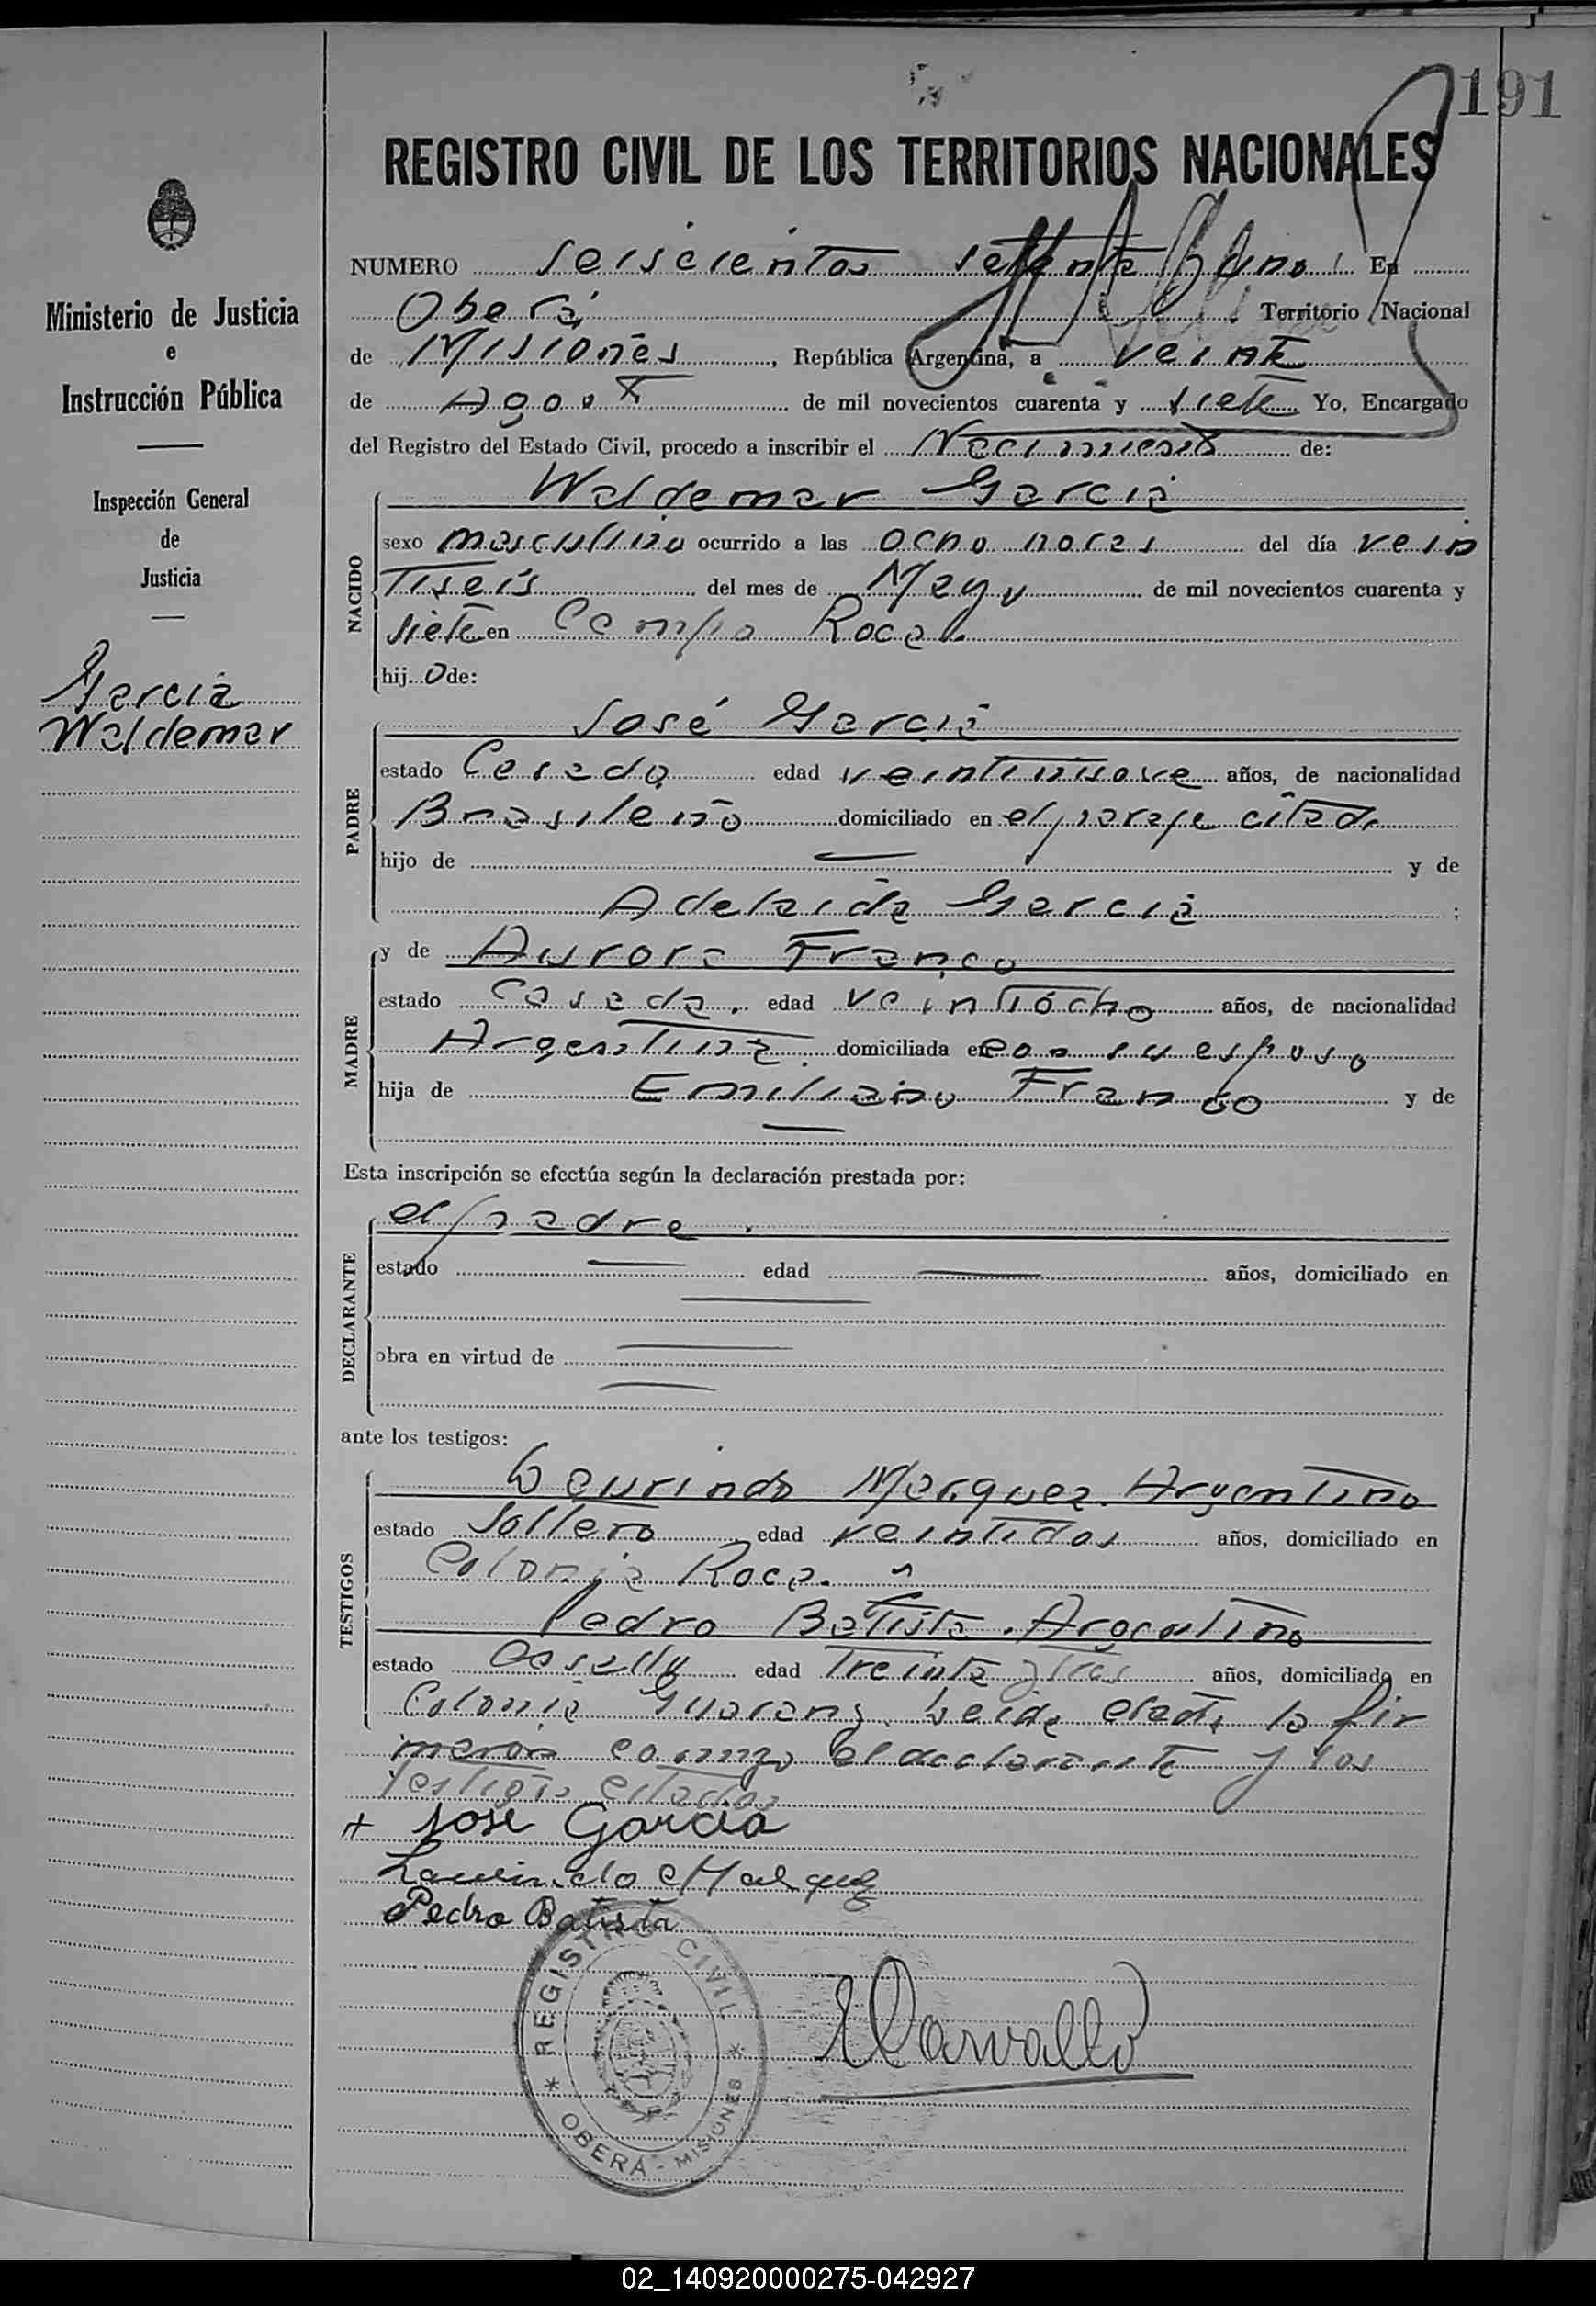 191
REGISTRO CIVIL DE LOS TERRITORIOS NACIONALES
NUMERO seiscientos setenta y uno. En
Oberá Territorio Nacional
de Misiones, República Argentina, a veinte
de Agosto de mil novecientos cuarenta y siete Yo, Encargado
del Registro del Estado Civil, procedo a inscribir el Nacimiento de:
Ministerio de Justicia
e
Instrucción Pública
Inspección General
de
Justicia
García
Waldemar
NACIDO
Waldemar García
sexo masculino ocurrido a las ocho horas del día vein
tiseis del mes de Mayo de mil novecientos cuarenta y
siete en Campo Roca.
hijo de:
PADRE
José García
estado Casado edad veintinueve años, de nacionalidad
Brasileño domiciliado en el paraje citado
hijo de — y de
Adelaida García ;
MADRE
y de Aurora Franco
estado Casada. edad veintiocho años, de nacionalidad
Argentina. domiciliada en con su esposo
hija de Emiliano Franco y de
—
Esta inscripción se efectúa según la declaración prestada por:
DECLARANTE
el padre.
estado — edad — años, domiciliado en
—
obra en virtud de —
—
ante los testigos:
TESTIGOS
Laurindo Marquez. Argentino
estado Soltero edad veintidos años, domiciliado en
Colonia Roca.
Pedro Batista. Argentino
estado edad Treinta y Tres años, domiciliado en
Colonia Guarany. Leida el acta la fir
maron el declarante y los
testigos citados
+ José García
Laurindo Marquez
Pedro Batista
REGISTRO CIVIL
* OBERÁ - MISIONES *
Carvallo
02_140920000275-042927